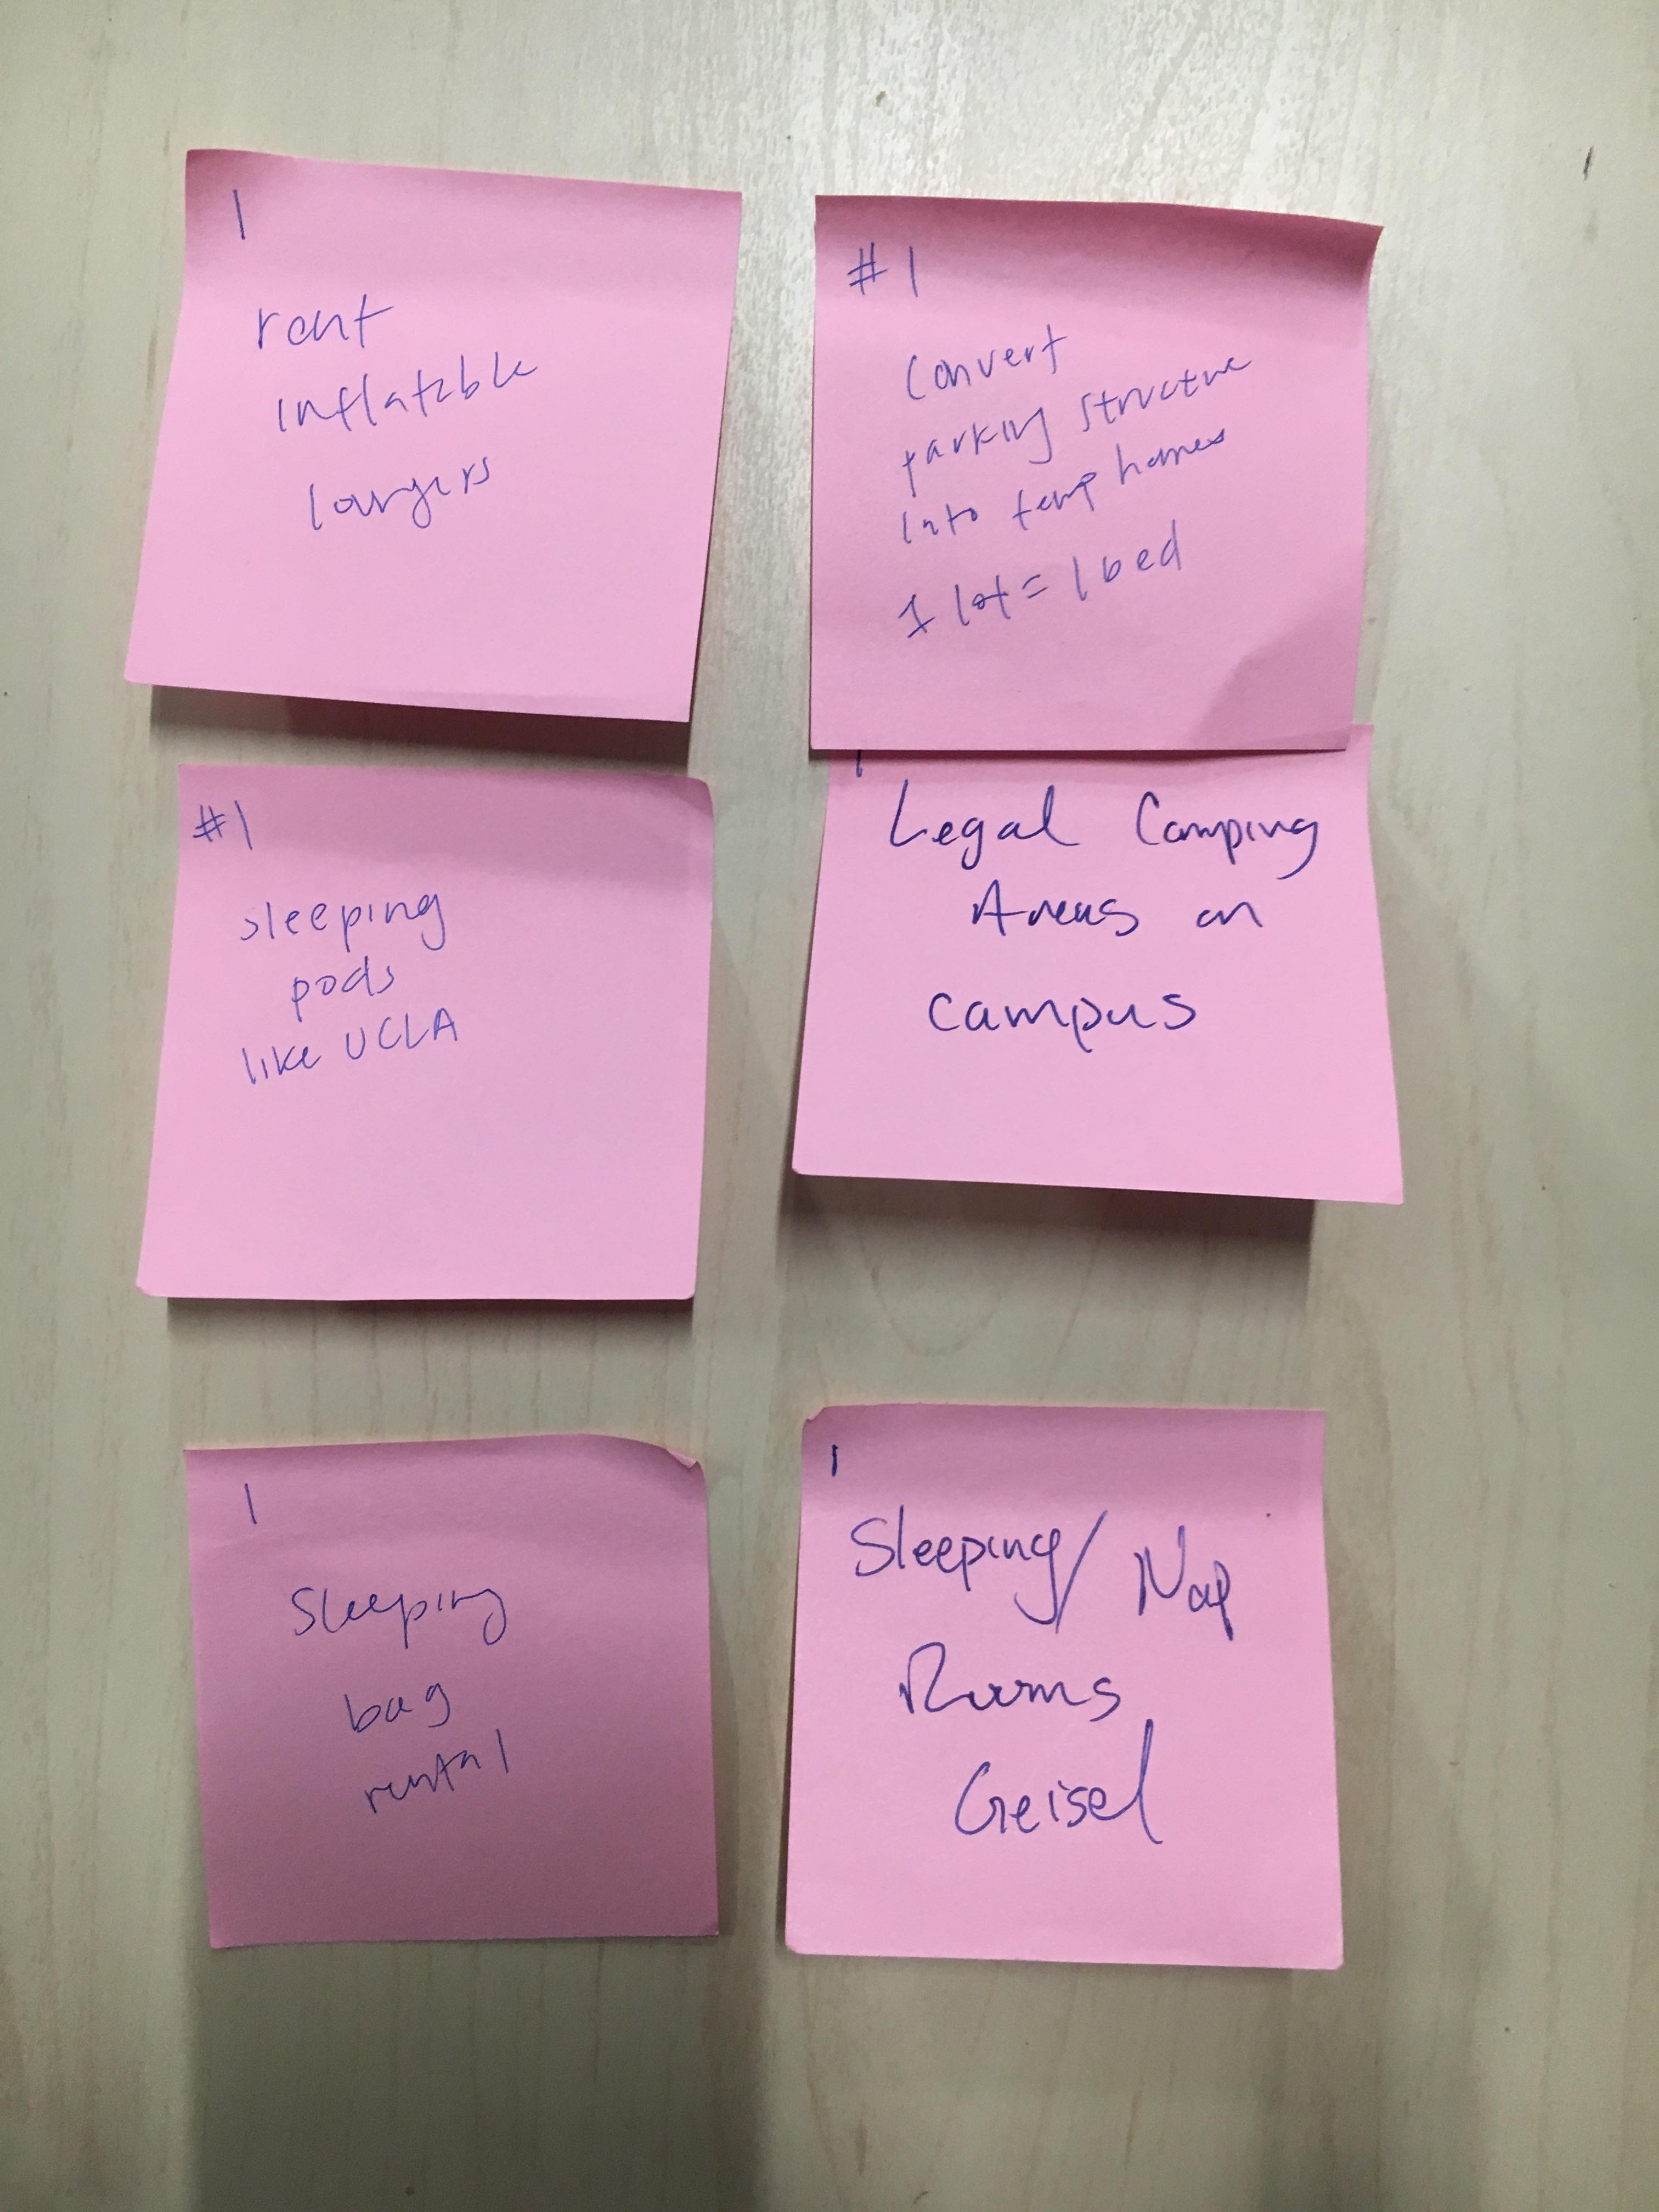 1
rent
inflatable
loungers
#1
Convert
parking structure
into temp homes
1 lot = 1 bed
#1
sleeping
pods
like UCLA
1
Legal Camping
Areas on
campus
1
Sleeping
bag
rental
1
Sleeping/ Nap
Rooms
Geisel